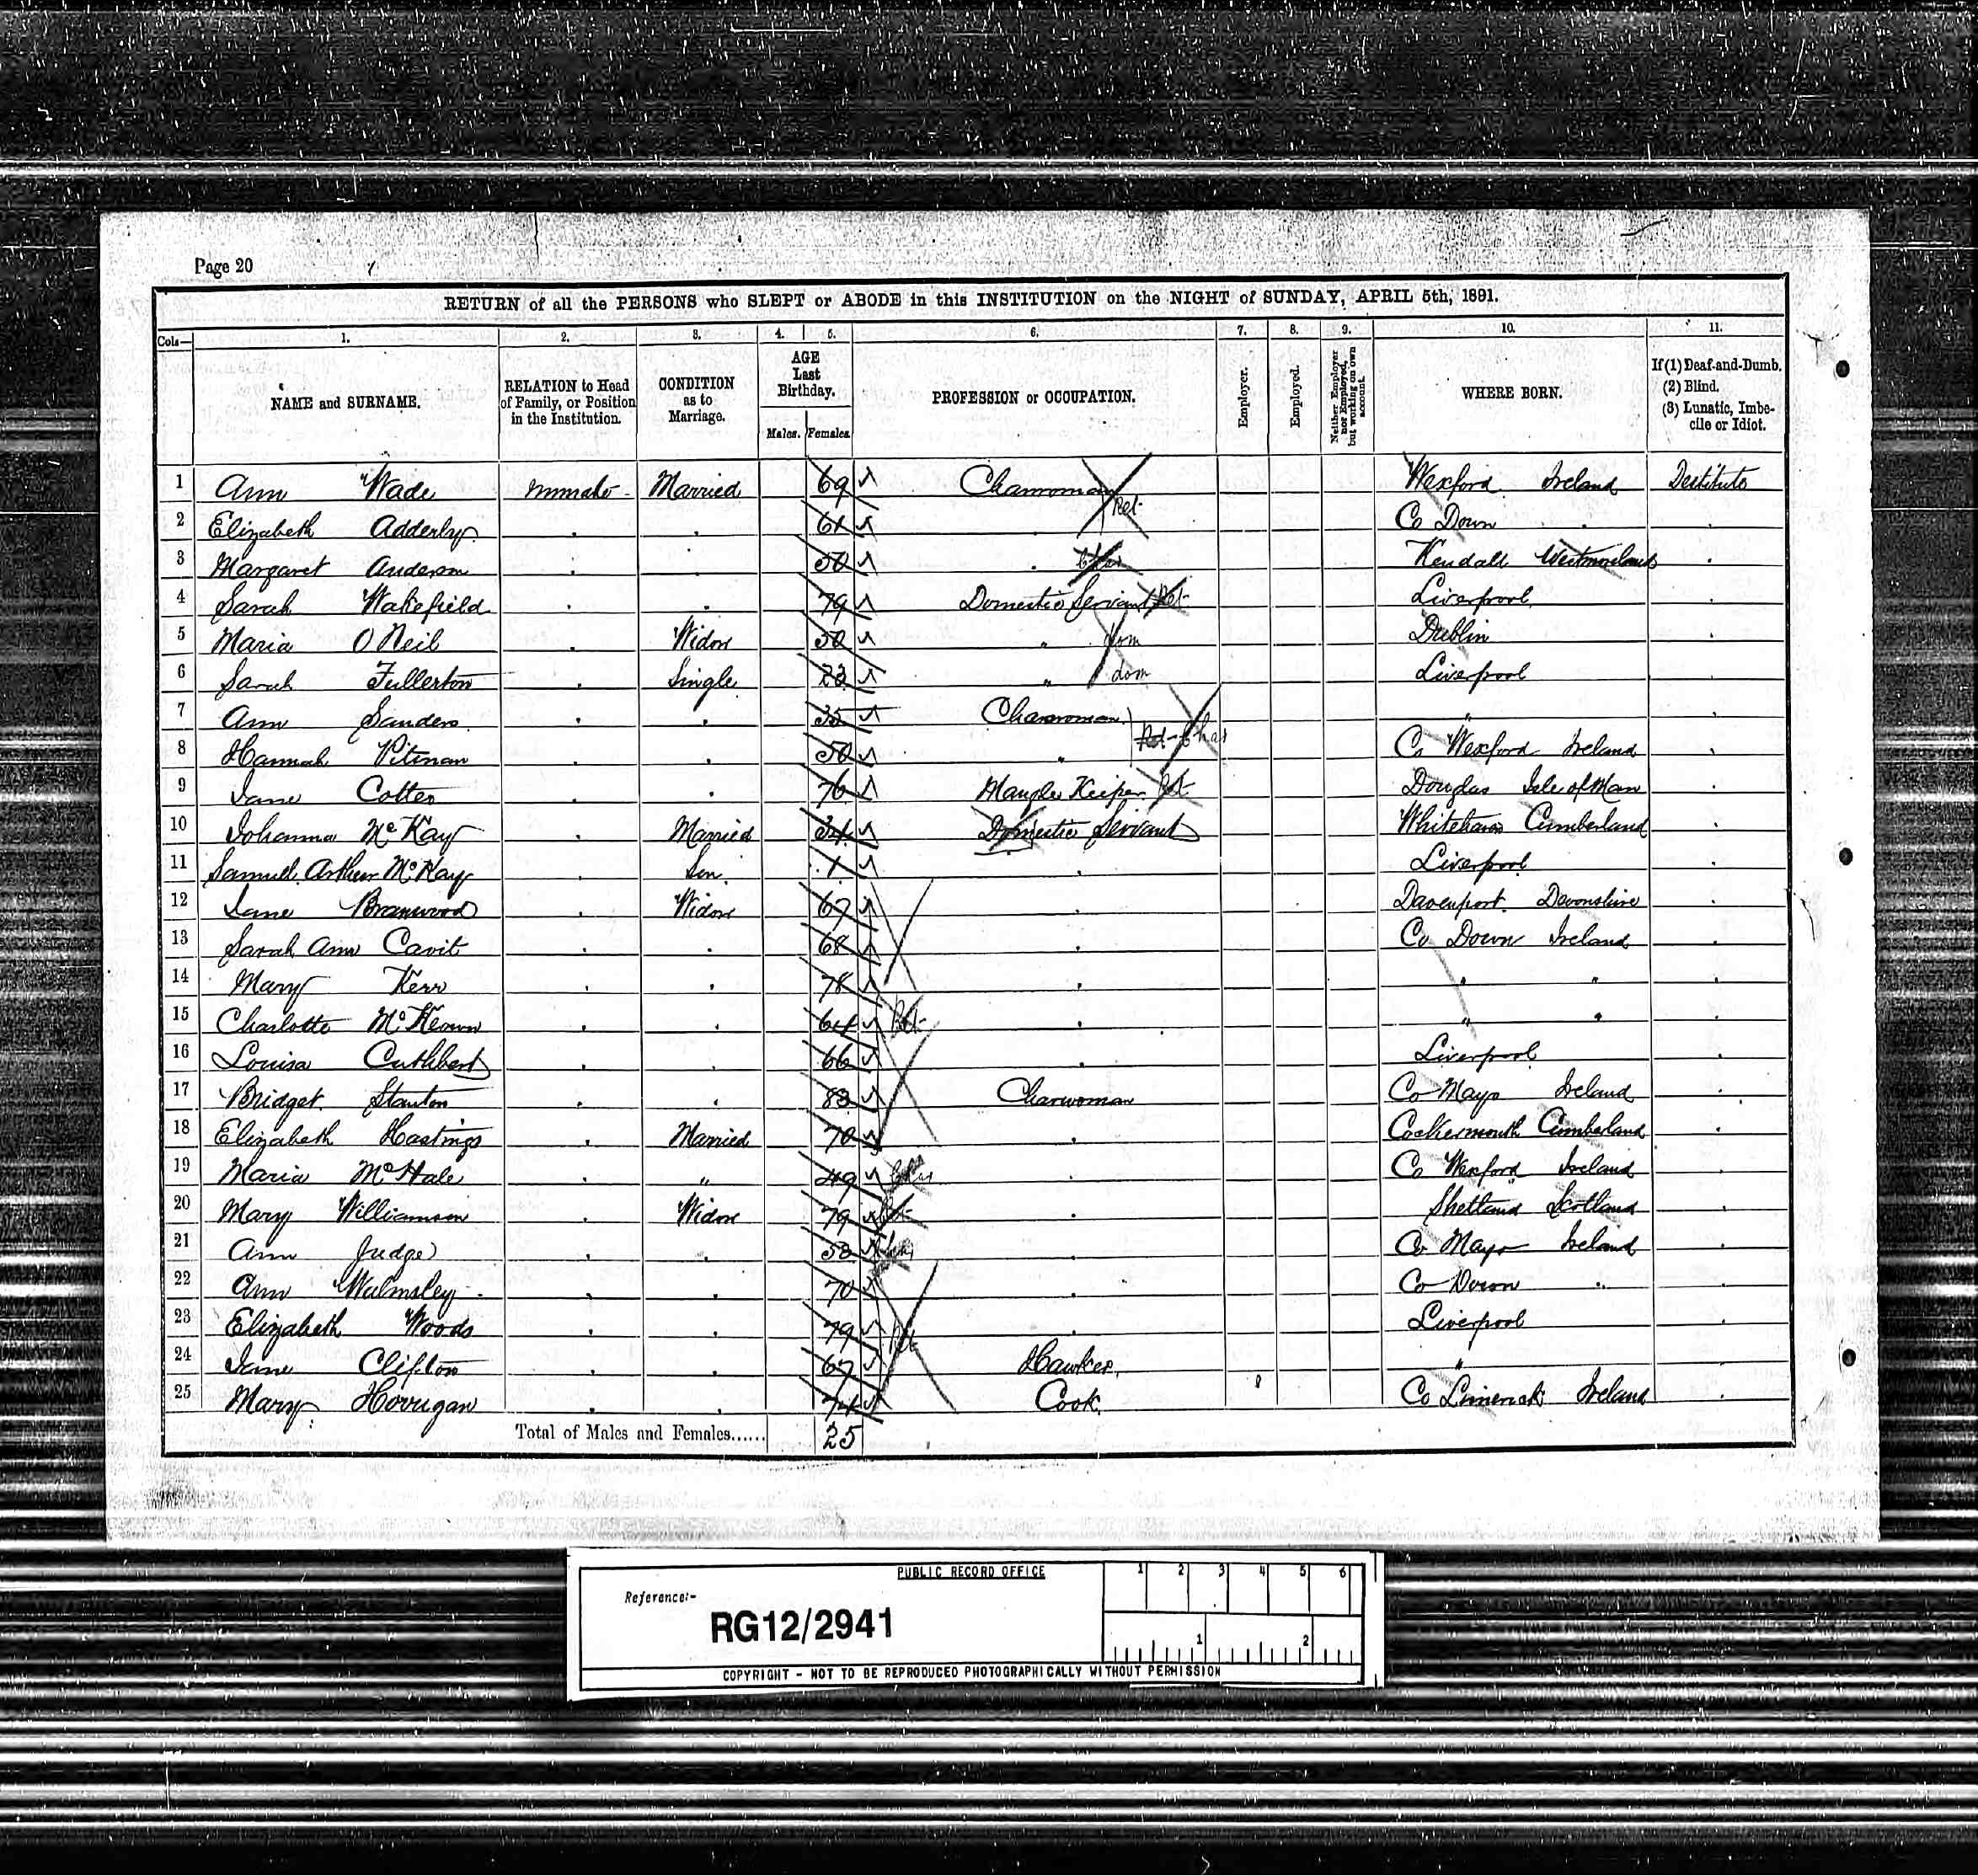 Page 20
RETURN of all the PERSONS who SLEPT or ABODE in this INSTITUTION on the NIGHT of SUNDAY, APRIL 5th, 1891.
Cols— 1. 2. 3. 4. 5. 6. 7. 8. 9. 10. 11.
NAME and SURNAME. RELATION to Head of Family, or Position in the Institution. CONDITION as to Marriage. AGE Last Birthday. Males. Females. PROFESSION or OCCUPATION. Employer. Employed. Neither Employer nor Employed, but working on own account. WHERE BORN. If (1) Deaf-and-Dumb. (2) Blind. (3) Lunatic, Imbecile or Idiot.
1 Ann Wade Inmate Married 69 Charwoman Ret Wexford Ireland Destitute
2 Elizabeth Adderly 61 Co Down
3 Margaret Anderson 50 Char Kendall Westmoreland
4 Sarah Wakefield 79 Domestic Servant Ret Liverpool
5 Maria O Neil Widow 50 " dom Dublin
6 Sarah Fullerton Single 23 " dom Liverpool
7 Ann Sanders 35 Charwoman "
8 Hannah Pitman 50 " Ret Char Co Wexford Ireland
9 Jane Cotter 76 Mangle Keeper Ret Douglas Isle of Man
10 Johanna McKay Married 34 Domestic Servant Whitehaven Cumberland
11 Samuel Arthur McKay Son 1 Liverpool
12 Jane Branwood Widow 67 Davenport Devonshire
13 Sarah Ann Cavit 68 Co Down Ireland
14 Mary Kerr 78 " "
15 Charlotte McKeown 64 Ret " "
16 Louisa Cuthbert 66 Liverpool
17 Bridget Stanton 83 Charwoman Co Mayo Ireland
18 Elizabeth Hastings Married 70 Cockermouth Cumberland
19 Maria McHale " 49 Char Co Wexford Ireland
20 Mary Williamson Widow 79 Shetland Scotland
21 Ann Judge 58 Co Mayo Ireland
22 Ann Walmsley 70 Co Down "
23 Elizabeth Woods 79 Ret Liverpool
24 Jane Clifton 67 Hawker "
25 Mary Horrigan 74 Cook Co Limerick Ireland
Total of Males and Females...... 25
PUBLIC RECORD OFFICE 1 2 3 4 5 6
Reference:-
RG12/2941
1 2
COPYRIGHT - NOT TO BE REPRODUCED PHOTOGRAPHICALLY WITHOUT PERMISSION